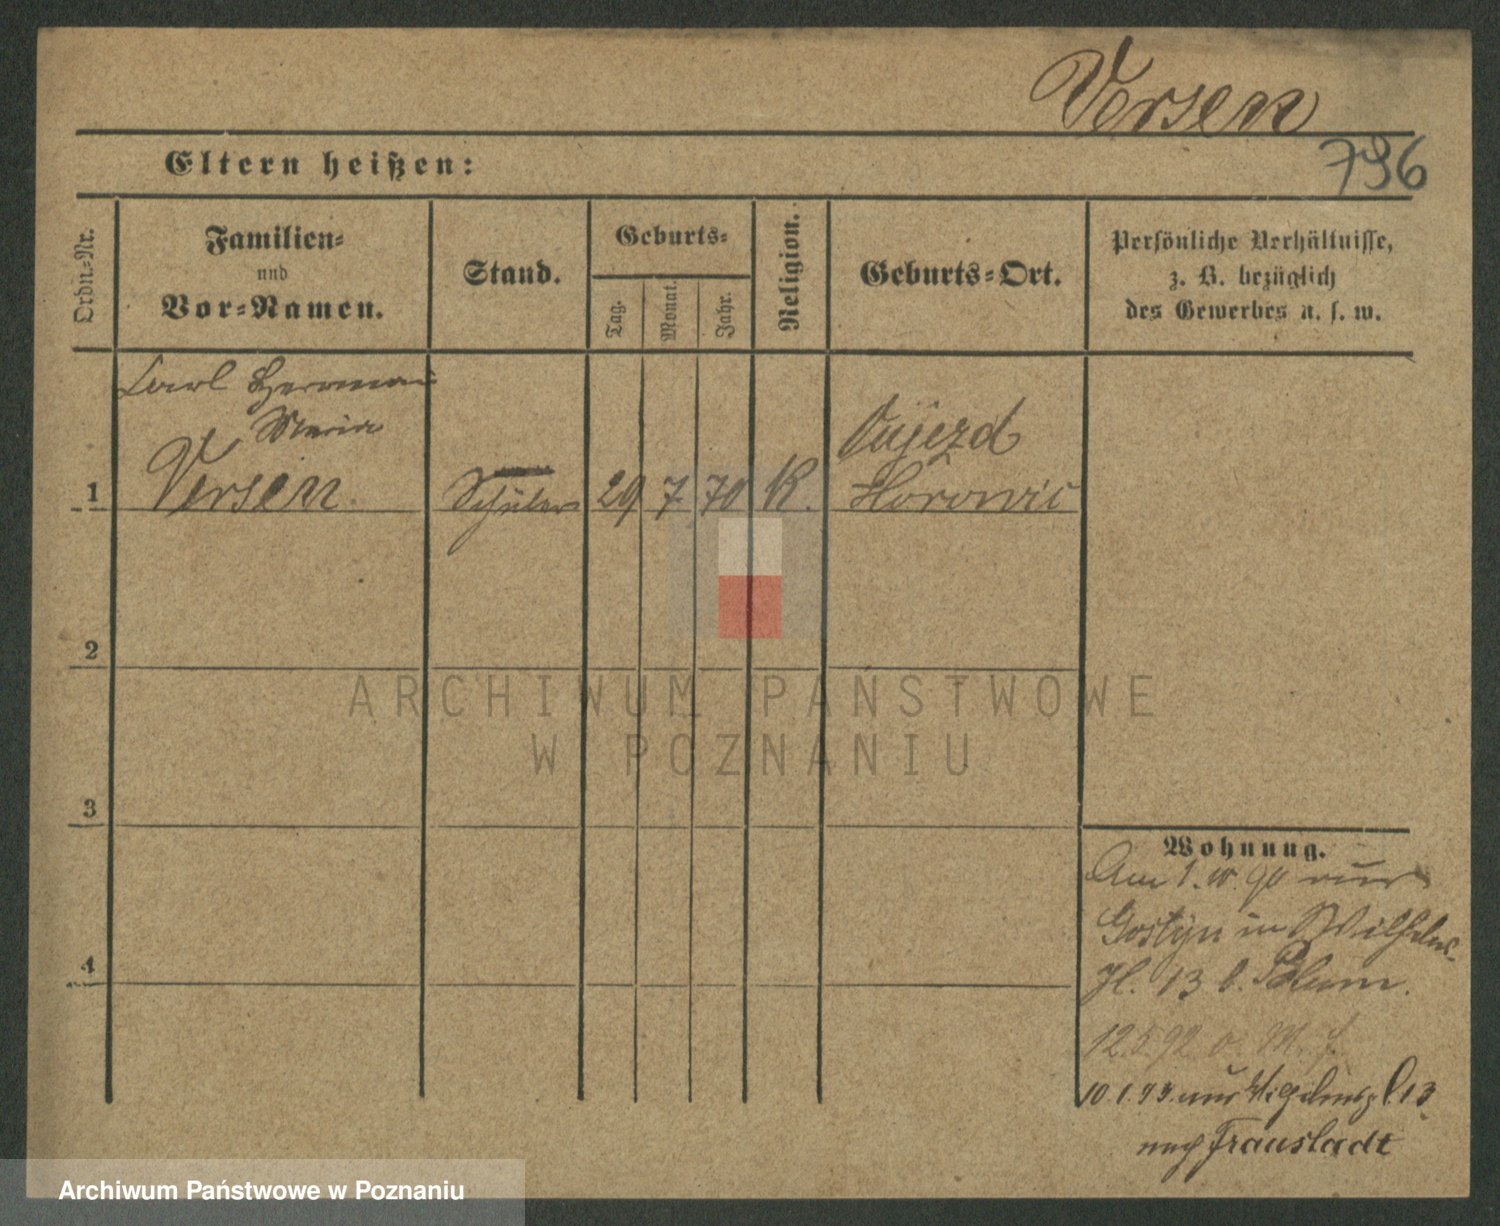 Versen
796
Eltern heißen:
Ordn.-Nr.
Familien-
und
Vor-Namen.
Stand.
Geburts-
Tag.
Monat.
Jahr.
Religion.
Geburts-Ort.
Persönliche Verhältnisse,
z. B. bezüglich
des Gewerbes u. s. w.
Carl Herman
Maria
1 Versen Schüler 29 7 70 K.
Aujezd
Horowic
2
3
4
Wohnung.
Am 1. 10. 90 aus
Gostyn in Wilhelms-
13 b. Blum.
12.5.92 o. M. f.
10.1.93. aus 13
nach Fraustadt
ARCHIWUM PAŃSTWOWE
W POZNANIU
Archiwum Państwowe w Poznaniu